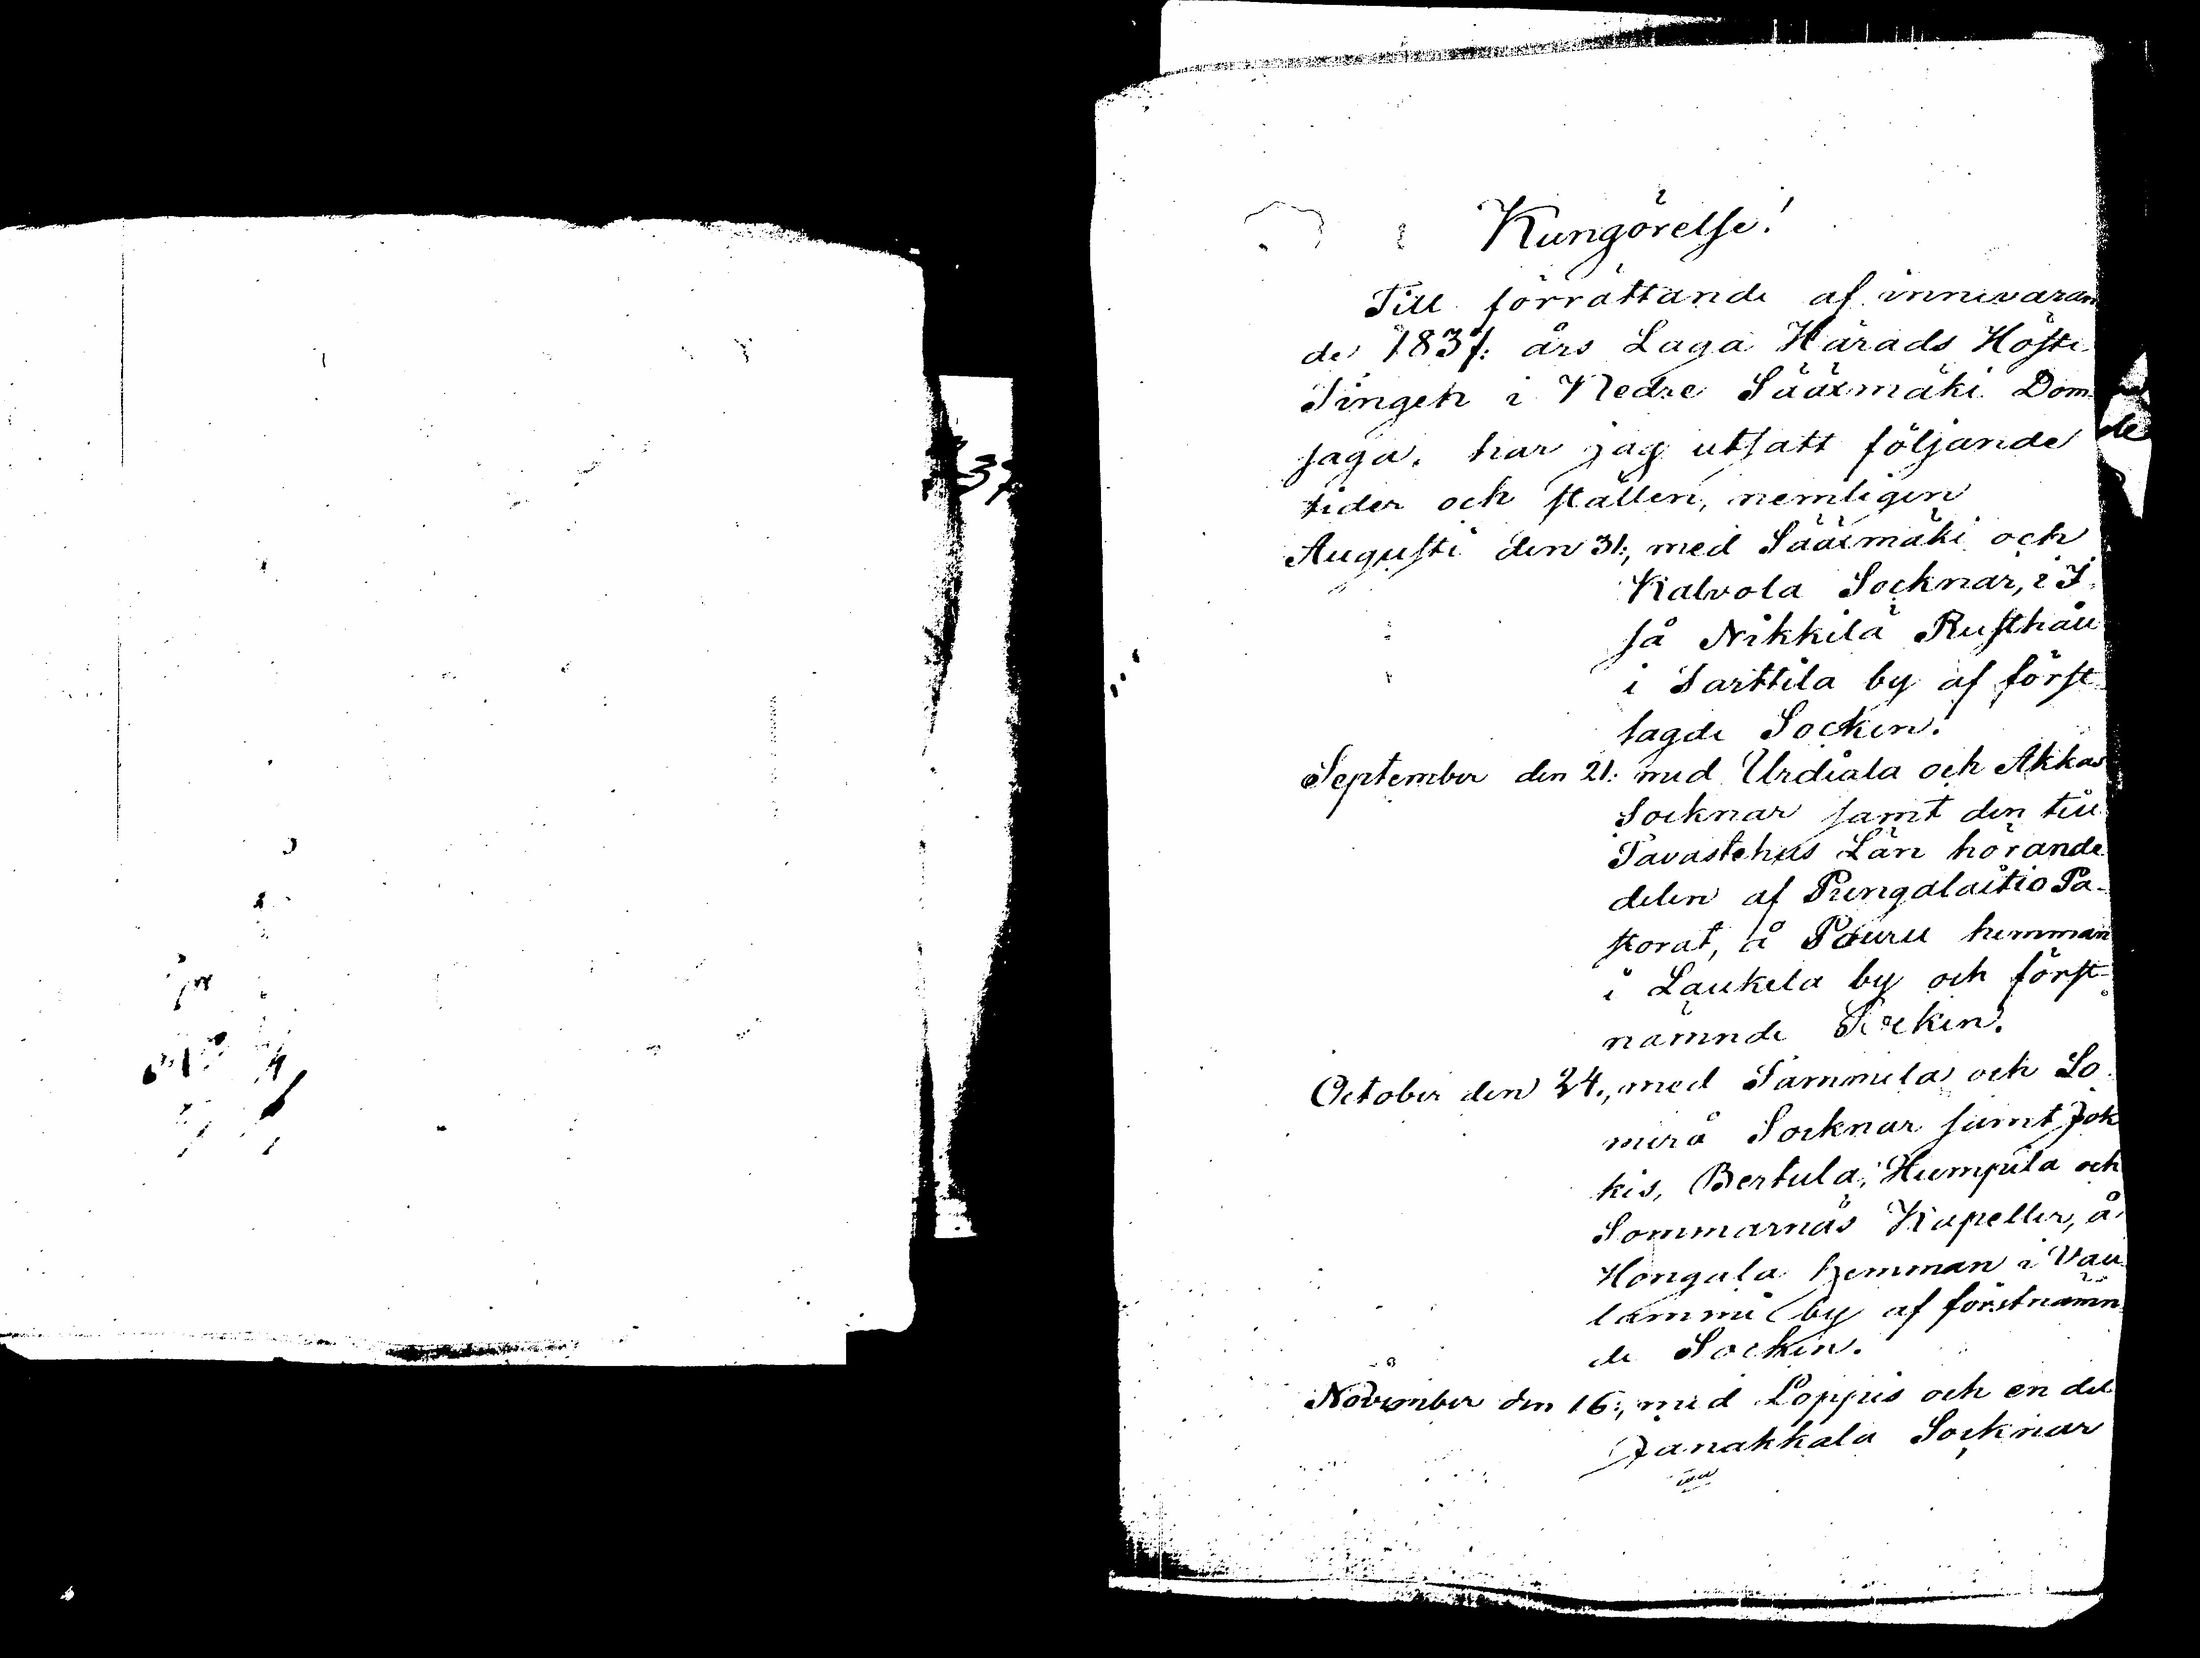 37
Kungörelse!
Till förrättande af innevaran
de 1837: års Laga Härads Höste
Tingen i Nedre Sääxmäki Dom
saga, har jag utsatt följande
tider och ställen, nemligen
Augusti den 31:, med Sääxmäki och
Kalvola Socknar, i I
så Nikkilä Rusthåll
i Sarttila by af först
sagde Socken.
September den 21: med Urdiala och Akkas
Socknar samt den till
Tavastehus Län hörande
delen af Pungalaitio Pa-
storat, å Pouru hemman
i Laukela by och först-
nämnde Socken.
October den 24., med Tammela och So
merå Socknar samt Jok
kis, Bertula, Humpila och
Sommarnäs Kapeller, å
Hongula hemman i Vau
lammi by af förstnämn
de Socken.
November den 16:, med Loppis och en del
Janakkala Socknar